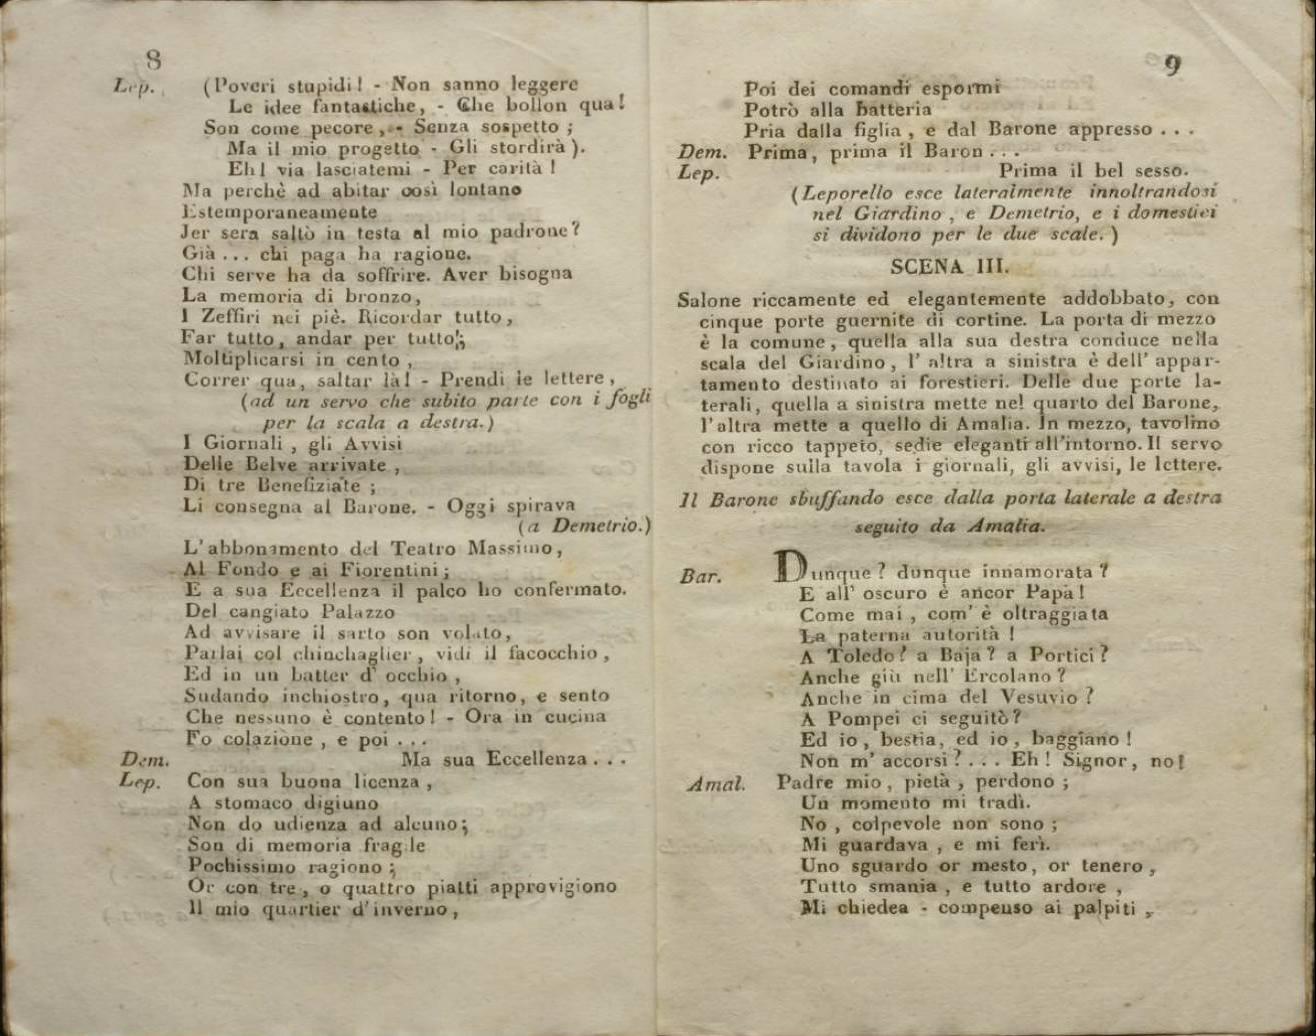 8
Lep. (Poveri stupidi! - Non sanno leggere
Le idee fantastiche, - Che bollon qua!
Son come pecore, - Senza sospetto;
Ma il mio progetto - Gli stordirà).
Eh! via lasciatemi - Per carità!
Ma perchè ad abitar così lontano
Estemporaneamente
Jer sera saltò in testa al mio padrone?
Già... chi paga ha ragione.
Chi serve ha da soffrire. Aver bisogna
La memoria di bronzo,
I Zeffiri nei piè. Ricordar tutto,
Far tutto, andar per tutto;
Moltiplicarsi in cento,
Correr qua, saltar là! - Prendi le lettere,
(ad un servo che subito parte con i fogli
per la scala a destra.)
I Giornali, gli Avvisi
Delle Belve arrivate,
Di tre Benefiziate;
Li consegna al Barone. - Oggi spirava
(a Demetrio.)
L'abbonamento del Teatro Massimo,
Al Fondo e ai Fiorentini;
E a sua Eccellenza il palco ho confermato.
Del cangiato Palazzo
Ad avvisare il sarto son volato,
Parlai col chinchaglier, vidi il facocchio,
Ed in un batter d'occhio,
Sudando inchiostro, qua ritorno, e sento
Che nessuno è contento! - Ora in cucina
Fo colazione, e poi...
Dem. Ma sua Eccellenza...
Lep. Con sua buona licenza,
A stomaco digiuno
Non do udienza ad alcuno;
Son di memoria fragile
Pochissimo ragiono;
Or con tre, o quattro piatti approvigiono
Il mio quartier d'inverno,
9
Poi dei comandi espormi
Potrò alla batteria
Pria dalla figlia, e dal Barone appresso...
Dem. Prima, prima il Baron...
Lep. Prima il bel sesso.
(Leporello esce lateralmente innoltrandosi
nel Giardino, e Demetrio, e i domestici
si dividono per le due scale.)
SCENA III.
Salone riccamente ed elegantemente addobbato, con
cinque porte guernite di cortine. La porta di mezzo
è la comune, quella alla sua destra conduce nella
scala del Giardino, l'altra a sinistra è dell'appar-
tamento destinato ai forestieri. Delle due porte la-
terali, quella a sinistra mette nel quarto del Barone,
l'altra mette a quello di Amalia. In mezzo, tavolino
con ricco tappeto, sedie eleganti all'intorno. Il servo
dispone sulla tavola i giornali, gli avvisi, le lettere.
Il Barone sbuffando esce dalla porta laterale a destra
seguito da Amalia.
Bar. Dunque? dunque innamorata?
E all' oscuro è ancor Papà!
Come mai, com' è oltraggiata
La paterna autorità!
A Toledo? a Baja? a Portici?
Anche giù nell' Ercolano?
Anche in cima del Vesuvio?
A Pompei ci seguitò?
Ed io, bestia, ed io, baggiano!
Non m' accorsi?... Eh! Signor, no!
Amal. Padre mio, pietà, perdono;
Un momento mi tradì.
No, colpevole non sono;
Mi guardava, e mi ferì.
Uno sguardo or mesto, or tenero,
Tutto smania, e tutto ardore,
Mi chiedea - compenso ai palpiti,